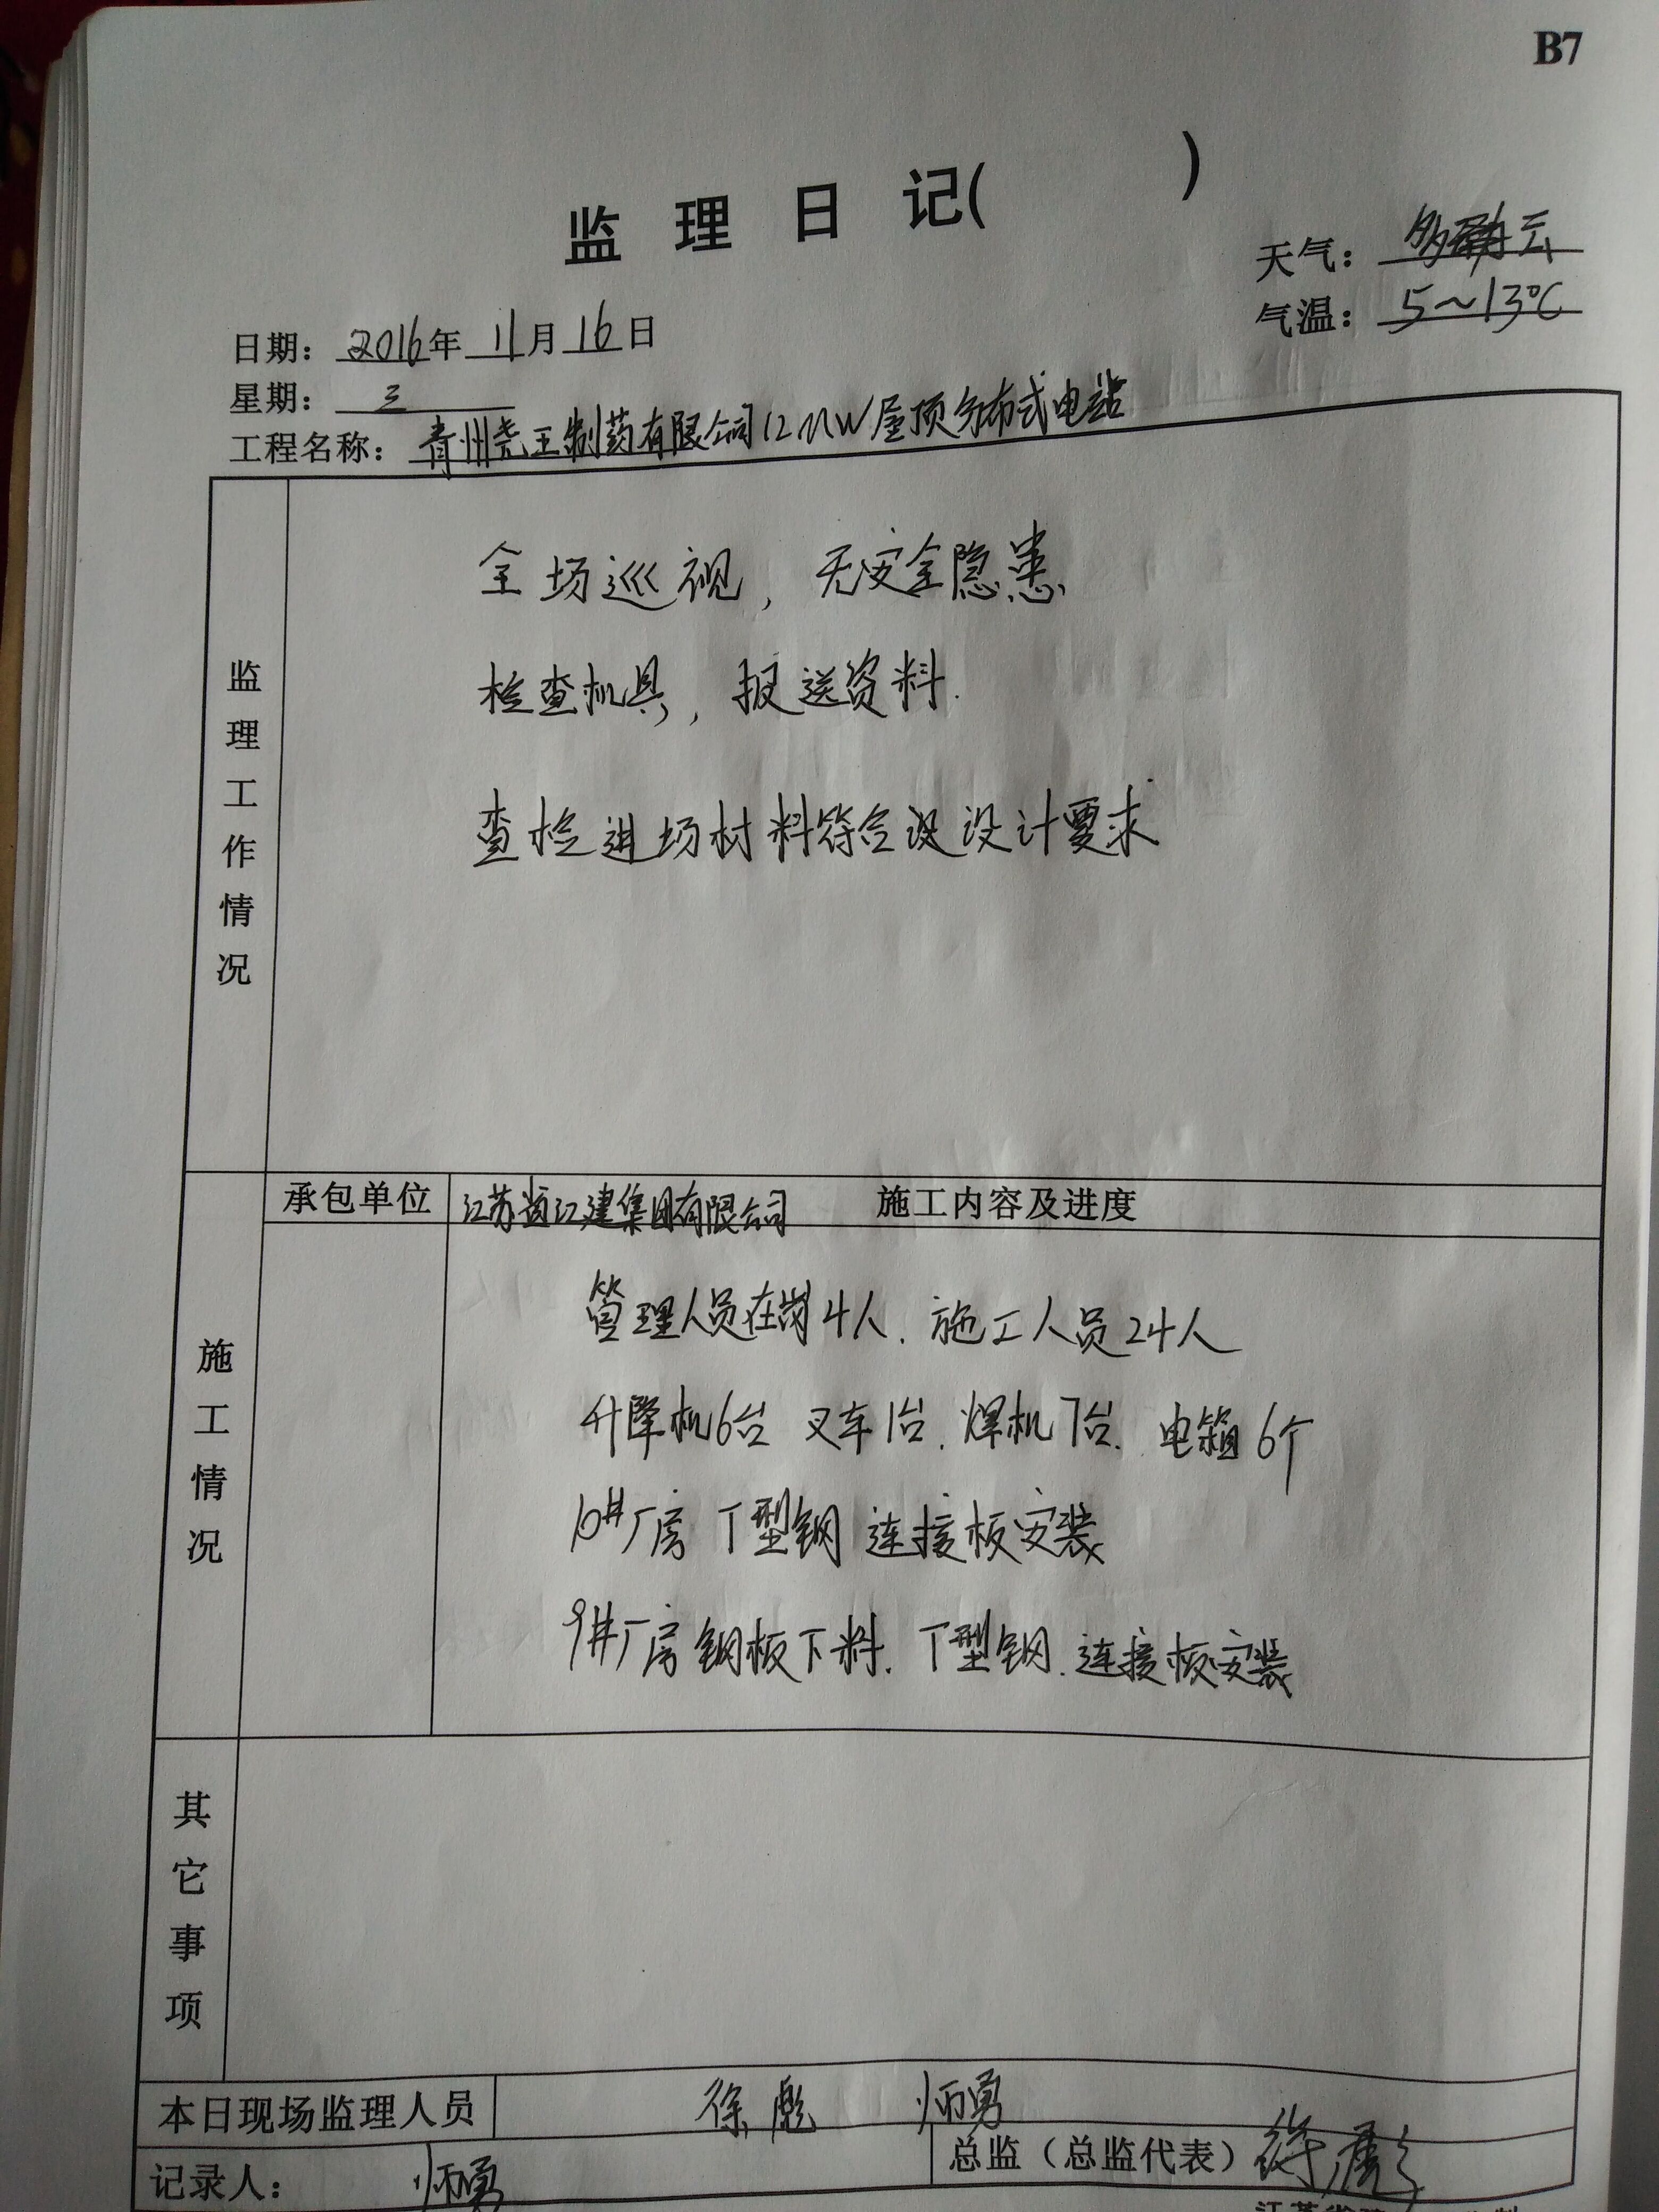 B7
监理日记( )
天气：多云
气温：5～13℃
日期：2016年11月16日
星期：三
工程名称：青州尧王制药有限公司12MW屋顶分布式电站
监理工作情况
全场巡视，无安全隐患
检查机具，报送资料.
查检进场材料符合设设计要求
承包单位
江苏省江建集团有限公司
施工内容及进度
施工情况
管理人员在岗4人.施工人员24人
升降机6台 叉车1台.焊机7台.电箱6个
10#厂房 T型钢 连接板安装
9#厂房 钢板下料.T型钢.连接板安装
其它事项
本日现场监理人员
徐彪 师勇
记录人：师勇
总监（总监代表）徐彪